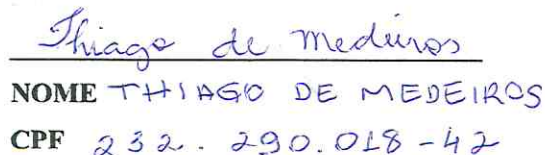 Thiago de Medeiros
NOME THIAGO DE MEDEIROS
CPF 232.290.018-42